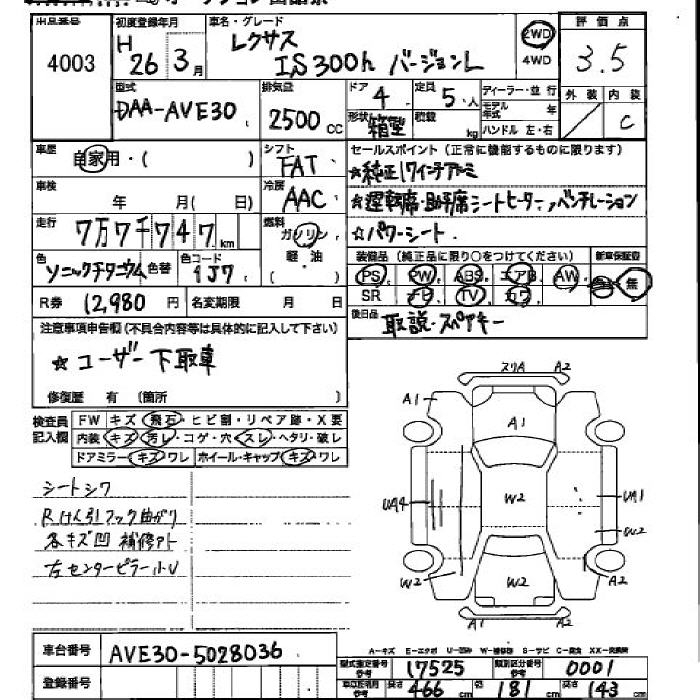 出品番号 初度登録年月 車名・グレード 評価点
4003 H 26年 3月 レクサス IS300h バージョンL 2WD 4WD 3.5
型式 排気量 ドア 4 定員 5人 ディーラー・並行 外装 内装
DAA-AVE30 2500cc 形状 箱型 積載 kg モデル年式 年 C
ハンドル 左・右
車歴 自家用・( ) シフト FAT セールスポイント(正常に機能するものに限ります)
☆純正17インチアルミ
車検 年 月( 日) 冷房 AAC ☆運転席・助手席シートヒーター、ベンチレーション
走行 7万7千747km 燃料 ガソリン 軽・油 ( ) ☆パワーシート
色 ソニックチタニウム 色替 色コード 1J7 装備品(純正品に限り○をつけてください) 新車保証書
PS PW ABS エアB AW 無
SR ナビ TV カワ
R券 12,980円 名変期限 月 日
後日品 取説・スペアキー
注意事項申告欄(不具合内容等は具体的に記入して下さい)
☆ユーザー下取車
修復歴 有 (箇所 )
検査員記入欄 FW キズ・飛石・ヒビ割・リペア跡・X要
内装・キズ・汚レ・コゲ・穴・スレ・ヘタリ・破レ
ドアミラー・キズ・ワレ ホイール・キャップ・キズ・ワレ
シートシワ
Rけん引フック曲がり
各キズ凹 補修アト
左センターピラー小U
スリA A2
A1 A2
A1
UA4 W2 UA1
W2
W2 W2 A2
A1 A2
A-キズ E-エクボ U-凹み W-補修跡 S-サビ C-腐食 XX-交換済
車台番号 AVE30-5028036
型式指定番号 参考 17525 類別区分番号 参考 0001
登録番号
長さ 466cm 幅 181cm 高さ 143cm